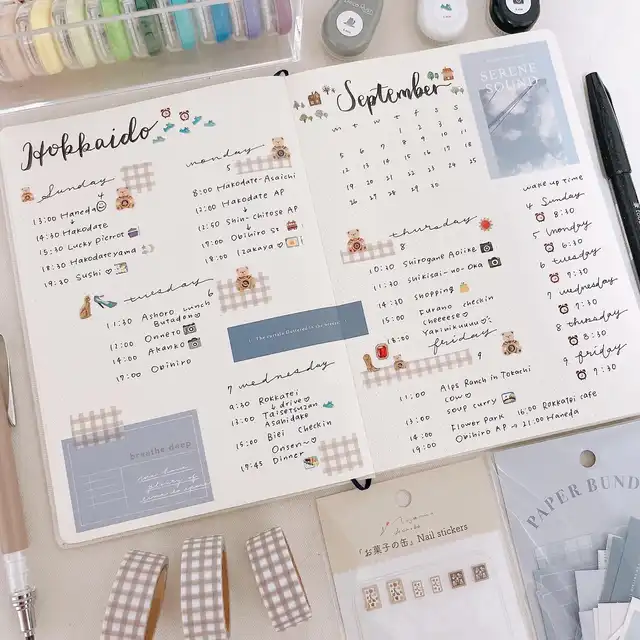 Hokkaido
Sunday
13:00 Haneda
↓
14:30 Hakodate
15:30 Lucky Pierrot
18:30 Hakodateyama
19:30 Sushi ♡
monday
5
8:00 Hakodate-Asaichi
12:00 Hakodate AP
↓
12:50 Shin-chitose AP
17:00 Obihiro St
18:00 Izakaya ♡
tuesday
6
11:30 Ashoro Lunch
Butadon
13:00 Onneto
14:00 Akanko
17:00 Obihiro
7 wednesday
9:30 Rokkatei
↓ drive ♡
13:00 Taisetsuzan
Asahidake
15:00 Biei Checkin
Onsen~♡
17:45 Dinner
1. The curtain fluttered in the breeze
breathe deep
September
m t w t f s s
1 2 3 4
5 6 7 8 9 10 11
12 13 14 15 16 17 18
19 20 21 22 23 24 25
26 27 28 29 30
SERENE
SOUND
thursday
8
10:30 Shirogane Aoiike
11:30 Shikisai-no-Oka
14:00 Shopping
15:00 Furano checkin
cheeeese ♡
18:00 Yakinikuuuu ♡
friday
9
11:00 Alps Ranch in Tokachi
cow ♡
13:00 soup curry
14:00 Flower Park 16:00 Rokkatei cafe
19:00 Obihiro AP → 21:00 Haneda
wake up time
4 Sunday
8:30
5 monday
6:30
6 tuesday
9:30
7 wednesday
9:30
8 thursday
8:30
9 friday
9:30
「お菓子の缶」Nail stickers
PAPER BUND